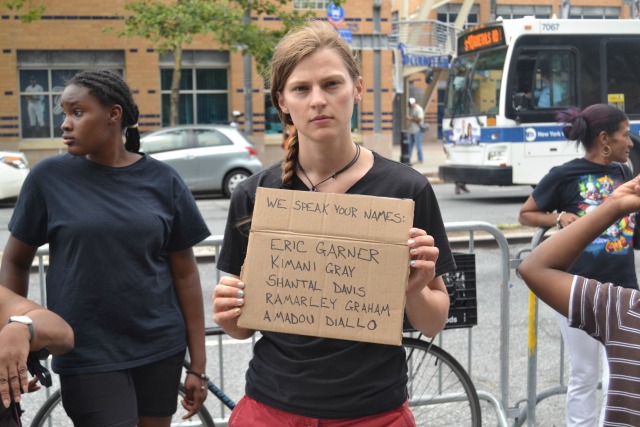 WE SPEAK YOUR NAMES:
ERIC GARNER
KIMANI GRAY
SHANTAL DAVIS
RAMARLEY GRAHAM
AMADOU DIALLO
7067